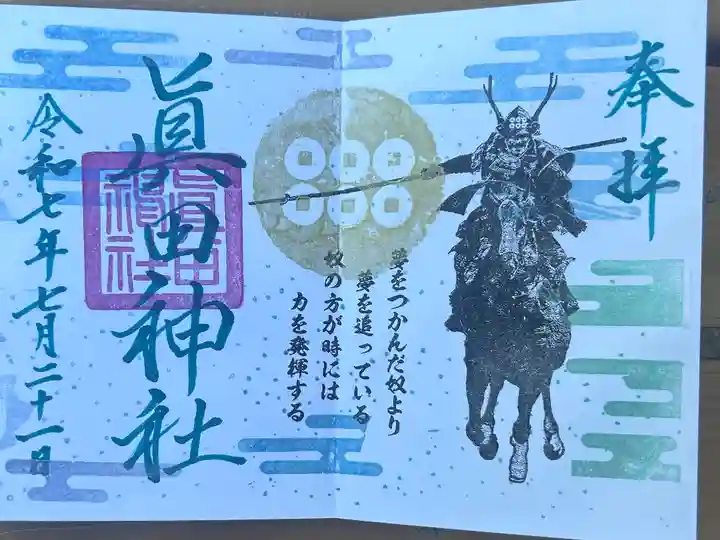 奉拝
夢をつかんだ奴より
夢を追っている
奴の方が時には
力を発揮する
眞田神社
眞田神社
令和七年七月二十一日